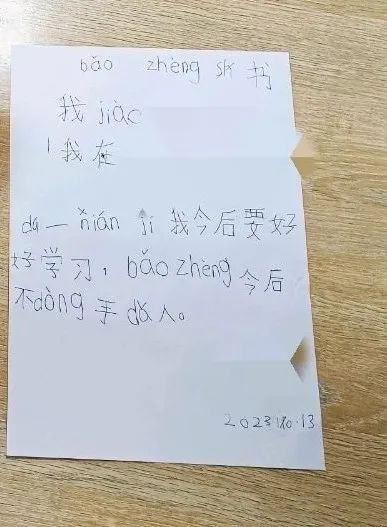 bǎo zhèng sh 书
我 jiào
我在
dá 一 nián jí 我今后要好
好学习，bǎo zhèng 今后
不dòng手 dǎ人。
2023.10.13